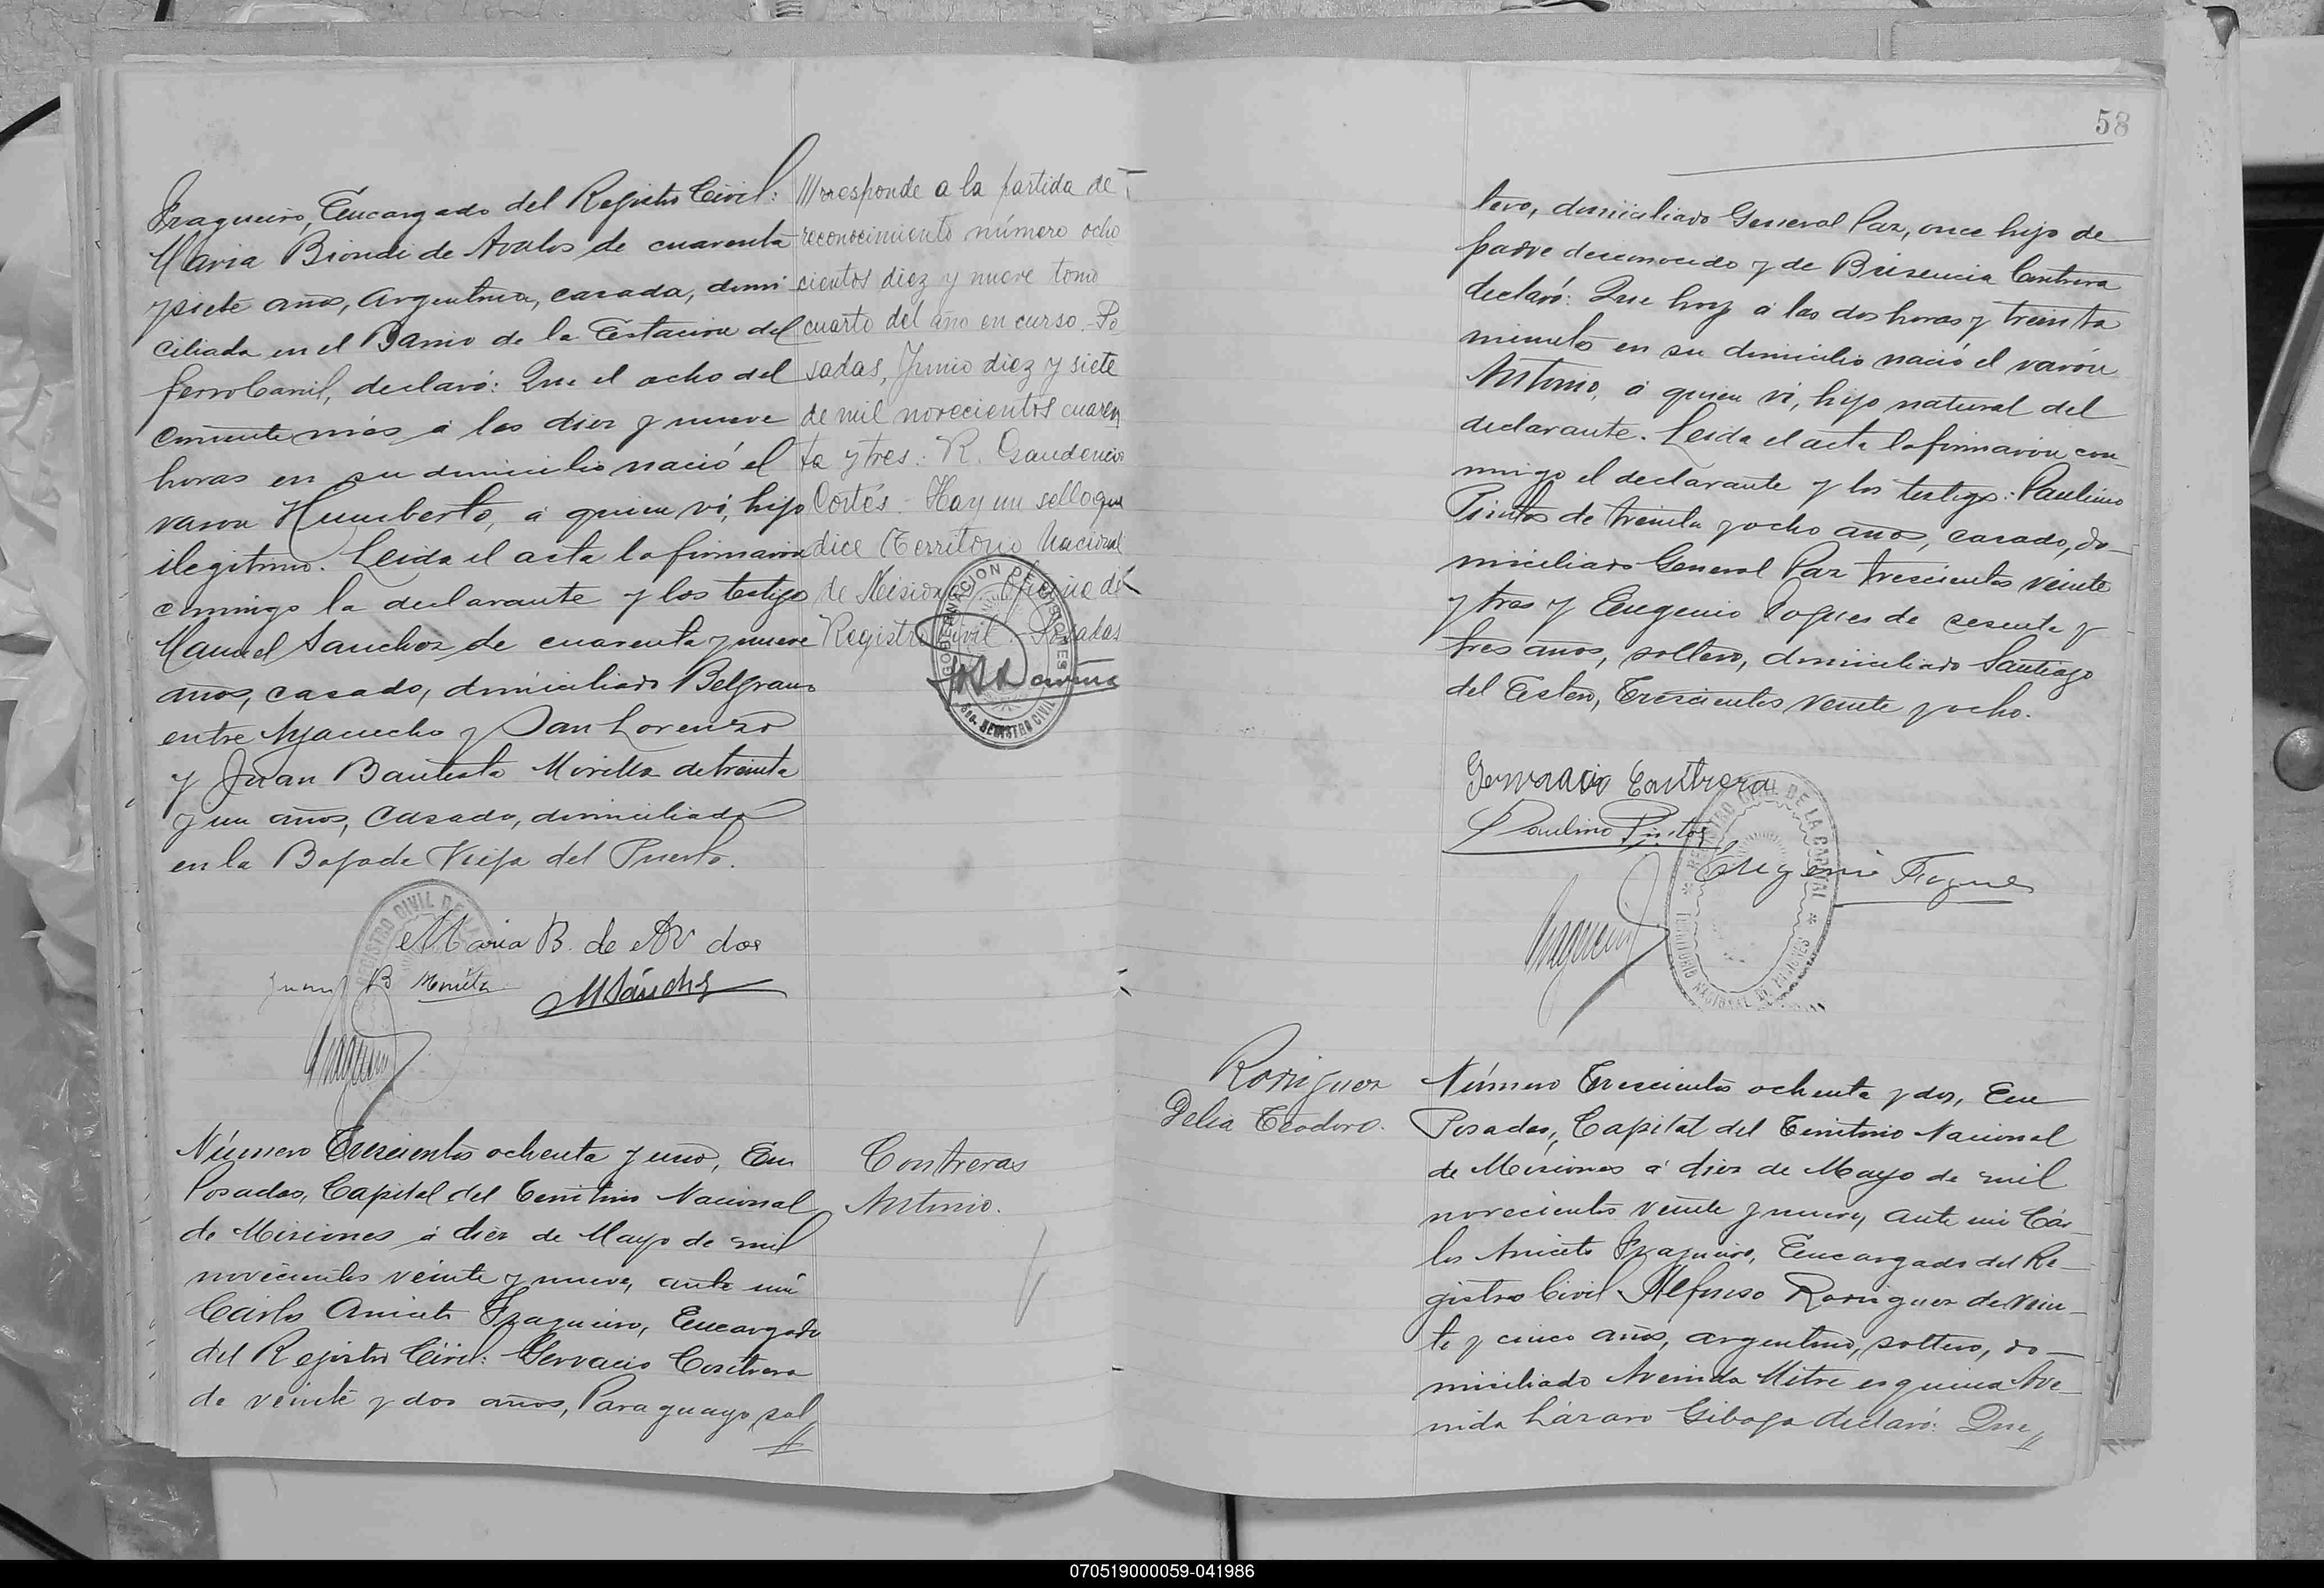 Fragueiro, Encargado del Registro Civil:
Maria Biondi de Avalos de cuarenta
y siete años, argentina, casada, domi
ciliada en el Barrio de la Estacion del
ferrocarril, declaró: Que el ocho del
corriente mes á las diez y nueve
horas en su domicilio nació el
varon Humberto, á quien ví, hijo
ilegitimo. Leida el acta la firmaron
conmigo la declarante y los testigos
Manuel Sanchez de cuarenta y nueve
años, casado, domiciliado Belgrano
entre Ayacucho y San Lorenzo
y Juan Bautista de treinta
y un años, casado, domiciliado
en la Bajada Vieja del Puerto.
Maria B. de
Juan B
M Sánchez
Fragueiro
Número Trescientos ochenta y uno, En
Posadas, Capital del Territorio Nacional
de Misiones á diez de Mayo de mil
novecientos veinte y nueve, ante mí
Carlos Aniceto Fragueiro, Encargado
del Registro Civil: Gervacio Contrera
de veinte y dos años, Paraguayo, sol
responde a la partida de
reconocimiento número ocho
cientos diez y nueve tomo
cuarto del año en curso.- Po
sadas, Junio diez y siete
de mil novecientos cuaren
ta y tres: R. Gaudencio
Cortés - Hay un sello que
dice Territorio Nacional
de Misiones Oficina de
Registro Civil - Posadas
GOBERNACION DE MISIONES
REGISTRO CIVIL
Contreras
Antonio.
58
tero, domiciliado General Paz, once hijo de
padre desconocido y de Brisencia Contrera
declaró: Que hoy á las dos horas y treinta
minutos en su domicilio nació el varón
Antonio, á quien ví, hijo natural del
declarante. Leida el acta la firmaron con
migo el declarante y los testigos: Paulino
Pintos de treinta y ocho años, casado, do-
miciliado General Paz trescientos veinte
y tres y Eugenio de sesenta y
tres años, soltero, domiciliado Santiago
del Estero, Trescientos veinte y ocho.
Gervacio Contrera
Paulino Pintos
Eugenio
Fragueiro
REGISTRO CIVIL DE LA CAPITAL
TERRITORIO NACIONAL DE MISIONES
Rodriguez
Delia Teodoro.
Número Trescientos ochenta y dos, En
Posadas, Capital del Territorio Nacional
de Misiones á diez de Mayo de mil
novecientos veinte y nueve, ante mi Cár
los Aniceto Fragueiro, Encargado del Re-
gistro Civil Alfonso Rodriguez de vein-
te y cinco años, argentino, soltero, do-
miciliado Avenida Mitre esquina Ave-
nida Lázaro Gibaja declaró: Que
070519000059-041986